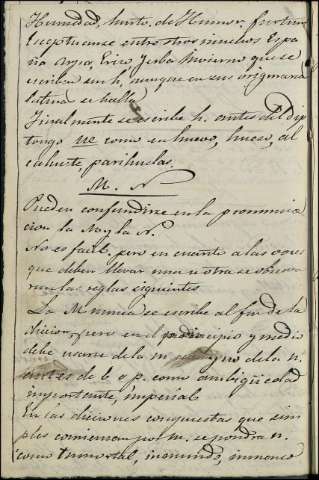 Humedad, hurto, de Humor, furtum
Esceptuanse entre otros muchos Espa
ña Arpa, Erico, Jerba Invierno que se
escriben sin h, aunque en sus origenes a la
latina se halla.
Finalmente se escribe h. antes del dip
tongo ue como en huevo, hueso, al
cahuete, parihuelas.
M. N
Pueden confundirse en la pronuncia
cion la M y la N.
No es facil, pero en cuanto a las voces
que deben llevar una u otra se observa
ran las reglas siguientes.
La M nunca se escribe al fin de la
diccion, pero en el principio y medio
debe usarse de la m y no de la n.
antes de b. o p. como ambigüedad
importante, imperial.
En las dicciones compuestas que sim
ples comienzan por m. se pondra n.
como inmortal, inmundo, inmenso